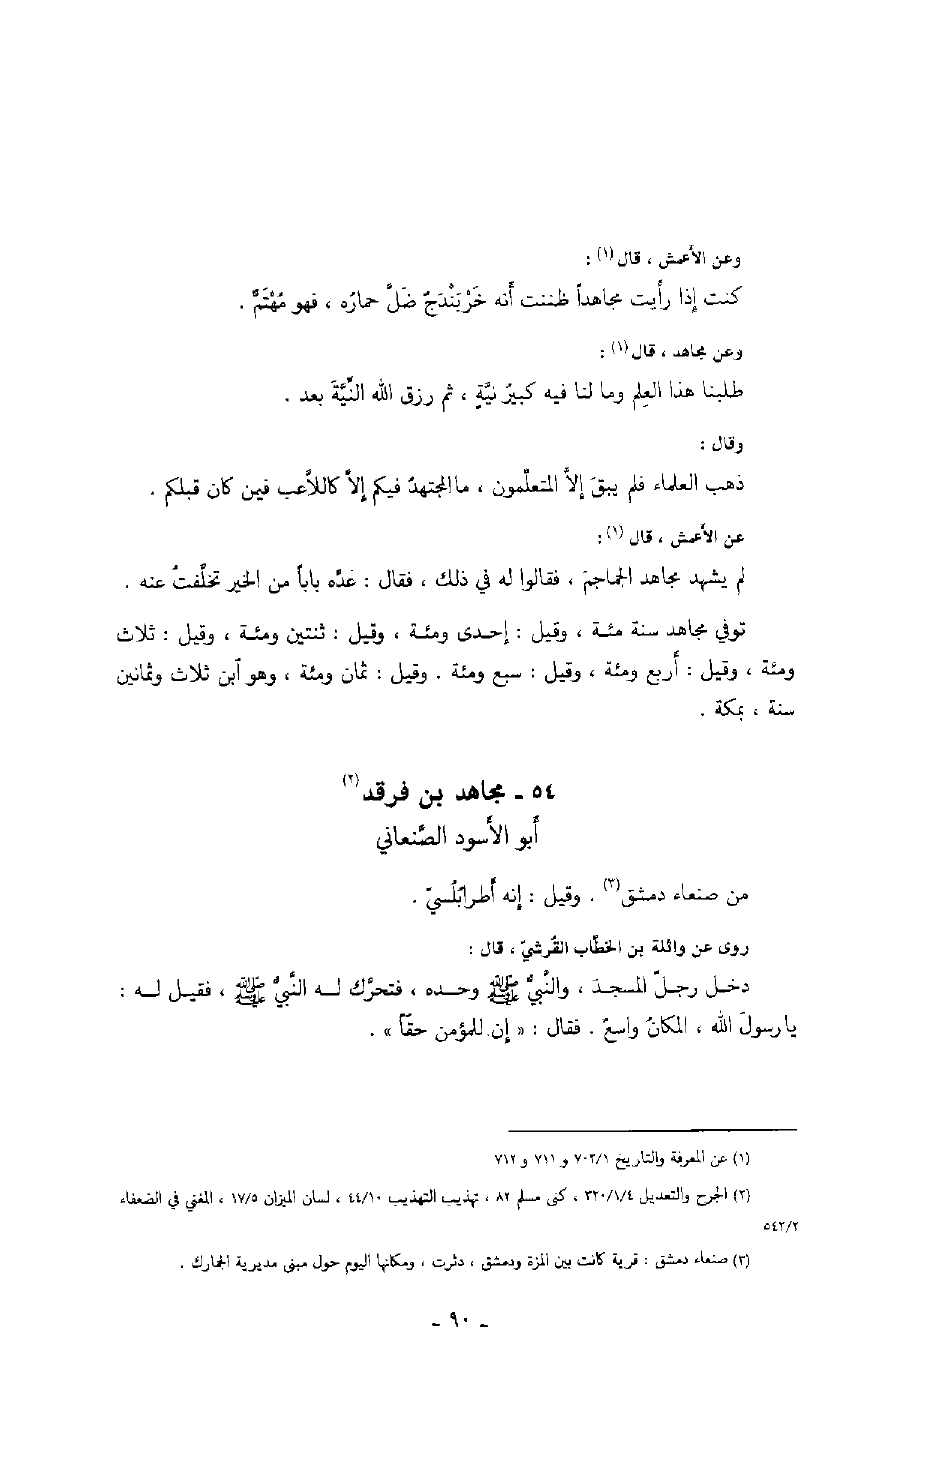 وعن الأعمش ، قال(١) :
كنت إذا رأيت مجاهداً ظننت أنه خَرْبَنْدَجٌ ضَلَّ حمارُه ، فهو مُهْتَمٌّ .
وعن مجاهد ، قال(١) :
طلبنا هذا العِلم وما لنا فيه كبيرُ نيَّةٍ ، ثم رزق الله النِّيَّةَ بعد .
وقال :
ذهب العلماء فلم يبقَ إلاَّ المتعلّمون ، ماالمجتهدُ فيكم إلاَّ كاللاَّعب فين كان قبلكم .
عن الأعمش ، قال(١) :
لم يشهد مجاهد الجماجمَ ، فقالوا له في ذلك ، فقال : عُدّه باباً من الخير تخلَّفتُ عنه .
توفي مجاهد سنة مئـة ، وقيل : إحـدى ومئـة ، وقيل : ثنتين ومئـة ، وقيل : ثلاث
ومئة ، وقيل : أربع ومئة ، وقيل : سبع ومئة . وقيل : ثمان ومئة ، وهو آبن ثلاث وثمانين
سنة ، بمكة .
٥٤ ـ مجاهد بن فرقد(٢)
أبو الأسود الصَّنعاني
من صنعاء دمشق(٣) . وقيل : إنه أَطرابُلُسيّ .
روى عن واثلة بن الخطَّاب القُرشيّ ، قال :
دخـل رجـلٌ المسجـدَ ، والنَّبيُّ ﷺ وحـده ، فتحرَّك لـه النَّبيُّ ﷺ ، فقيـل لـه :
يارسولَ الله ، المكانُ واسعٌ . فقال : « إن للمؤمن حقّاً » .
(١) عن المعرفة والتاريخ ٧٠٢/١ و ٧١١ و ٧١٢
(٢) الجرح والتعديل ٣٢٠/١/٤ ، كنى مسلم ٨٢ ، تهذيب التهذيب ٤٤/١٠ ، لسان الميزان ١٧/٥ ، المغني في الضعفاء
٥٤٢/٢
(٣) صنعاء دمشق : قرية كانت بين المزة ودمشق ، دثرت ، ومكانها اليوم حول مبنى مديرية الجمارك .
ـ ٩٠ ـ